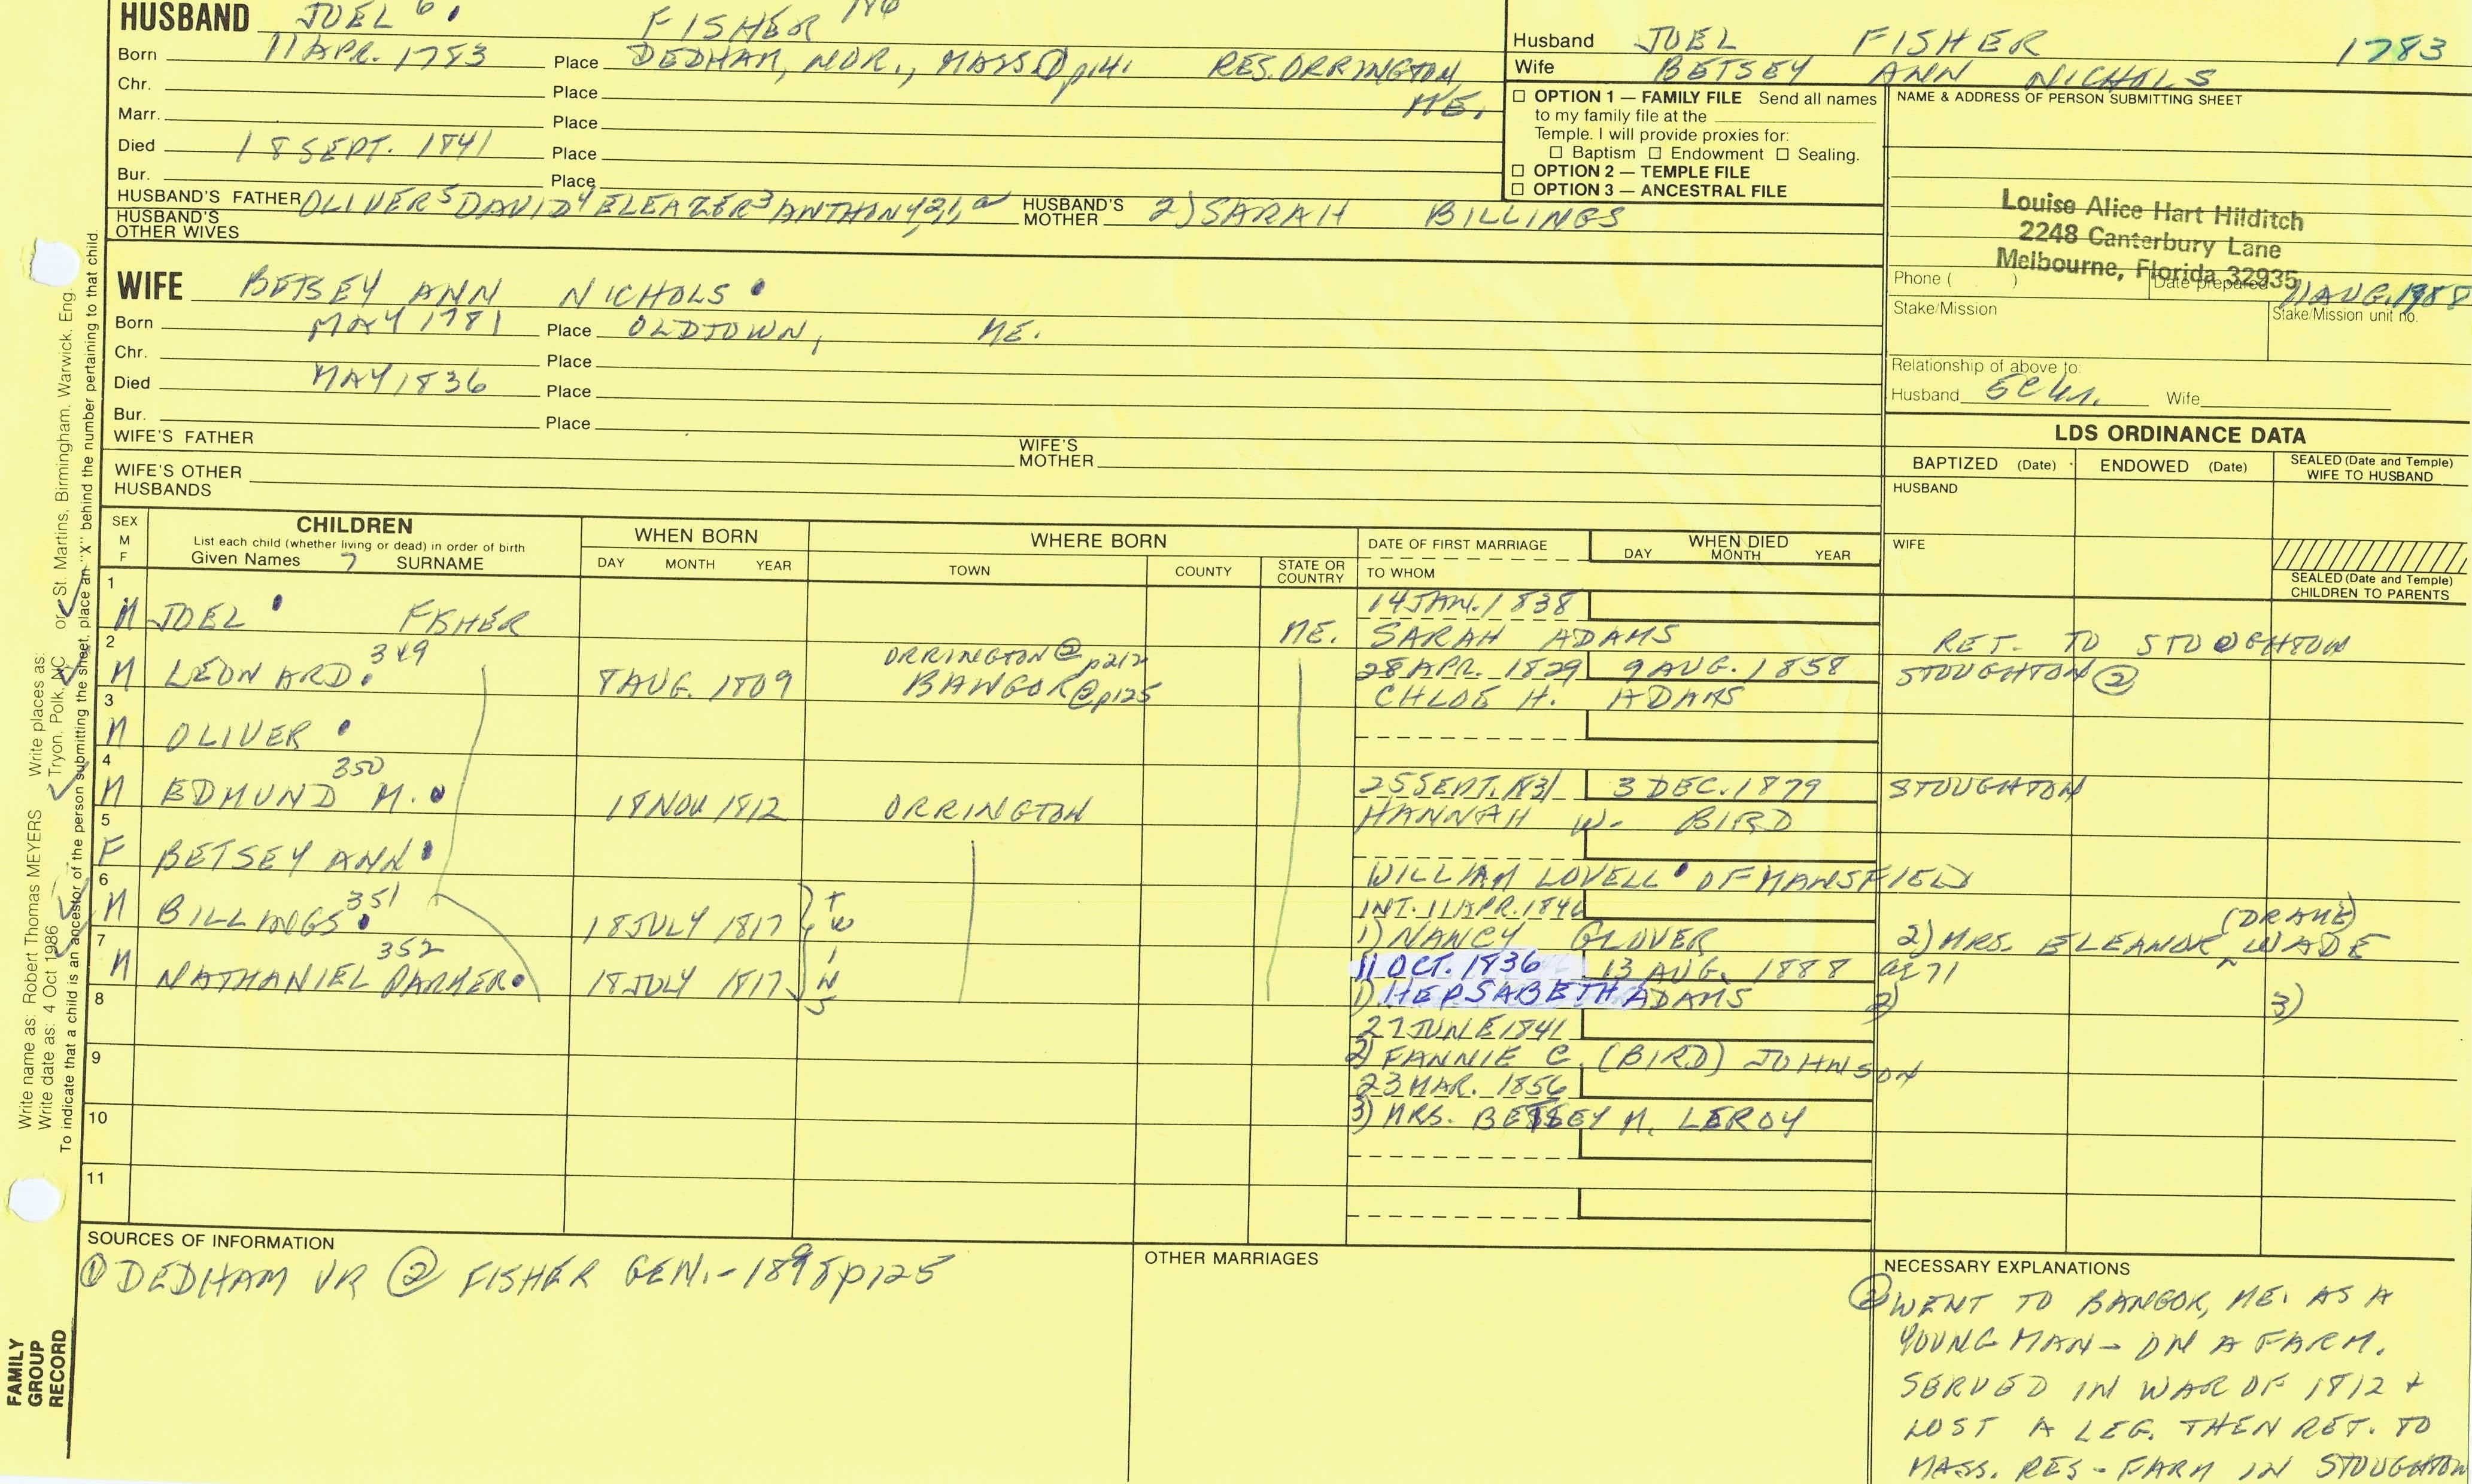 HUSBAND JOEL 6 FISHER 176
Born 11 APR. 1783 Place DEDHAM, NOR., MASS ① p141 RES. ORRINGTON, ME.
Chr. Place
Marr. Place
Died 18 SEPT. 1841 Place
Bur. Place
HUSBAND'S FATHER OLIVER 5 DAVID 4 ELEAZER 3 ANTHONY 2,1, HUSBAND'S MOTHER 2) SARAH BILLINGS
HUSBAND'S OTHER WIVES
Husband JOEL FISHER 1783
Wife BETSEY ANN NICHOLS
☐ OPTION 1 — FAMILY FILE Send all names
to my family file at the
Temple. I will provide proxies for:
☐ Baptism ☐ Endowment ☐ Sealing.
☐ OPTION 2 — TEMPLE FILE
☐ OPTION 3 — ANCESTRAL FILE
NAME & ADDRESS OF PERSON SUBMITTING SHEET
Louise Alice Hart Hilditch
2248 Canterbury Lane
Melbourne, Florida 32935
Phone ( ) Date prepared 11 AUG. 1988
Stake/Mission Stake/Mission unit no.
Relationship of above to:
Husband 5C4R. Wife
WIFE BETSEY ANN NICHOLS
Born MAY 1781 Place OLDTOWN, ME.
Chr. Place
Died MAY 1836 Place
Bur. Place
WIFE'S FATHER WIFE'S MOTHER
WIFE'S OTHER HUSBANDS
LDS ORDINANCE DATA
BAPTIZED (Date) ENDOWED (Date) SEALED (Date and Temple) WIFE TO HUSBAND
HUSBAND
WIFE
SEALED (Date and Temple) CHILDREN TO PARENTS
SEX M F
CHILDREN
List each child (whether living or dead) in order of birth
Given Names 7 SURNAME
WHEN BORN
DAY MONTH YEAR
WHERE BORN
TOWN COUNTY STATE OR COUNTRY
DATE OF FIRST MARRIAGE
TO WHOM
WHEN DIED
DAY MONTH YEAR
1 14 JAN. 1838
M JOEL FISHER ME. SARAH ADAMS RET. TO STOUGHTON
2 349 ORRINGTON @ p212 28 APR. 1829 9 AUG. 1858 STOUGHTON ②
M LEONARD 8 AUG. 1809 BANGOR @ p125 CHLOE H. ADAMS
3
M OLIVER
4 350 25 SEPT. 1831 3 DEC. 1879 STOUGHTON
M EDMUND M. 18 NOV 1812 ORRINGTON HANNAH W. BIRD
5
F BETSEY ANN WILLIAM LOVELL OF MANSFIELD
6 351 INT. 11 APR. 1846
M BILLINGS 18 JULY 1817 TWINS 1) NANCY GLOVER 2) MRS. ELEANOR (DRAKE) WADE
7 352 11 OCT. 1836 13 AUG. 1888 ae 71
M NATHANIEL PARKER 18 JULY 1817 1) HEPSABETH ADAMS 2) 3)
8 27 JUNE 1841
2) FANNIE C. (BIRD) JOHNSON
9 23 MAR. 1856
3) MRS. BETSEY M. LEROY
10
11
SOURCES OF INFORMATION
① DEDHAM VR ② FISHER GEN. - 1898 p125
OTHER MARRIAGES
NECESSARY EXPLANATIONS
② WENT TO BANGOR, ME. AS A
YOUNG MAN - ON A FARM.
SERVED IN WAR OF 1812 +
LOST A LEG. THEN RET. TO
MASS. RES - FARM IN STOUGHTON
Write name as: Robert Thomas MEYERS Write places as: Tryon, Polk, NC or St. Martins, Birmingham, Warwick, Eng.
Write date as: 4 Oct 1986
To indicate that a child is an ancestor of the person submitting the sheet, place an "X" behind the number pertaining to that child.
FAMILY
GROUP
RECORD